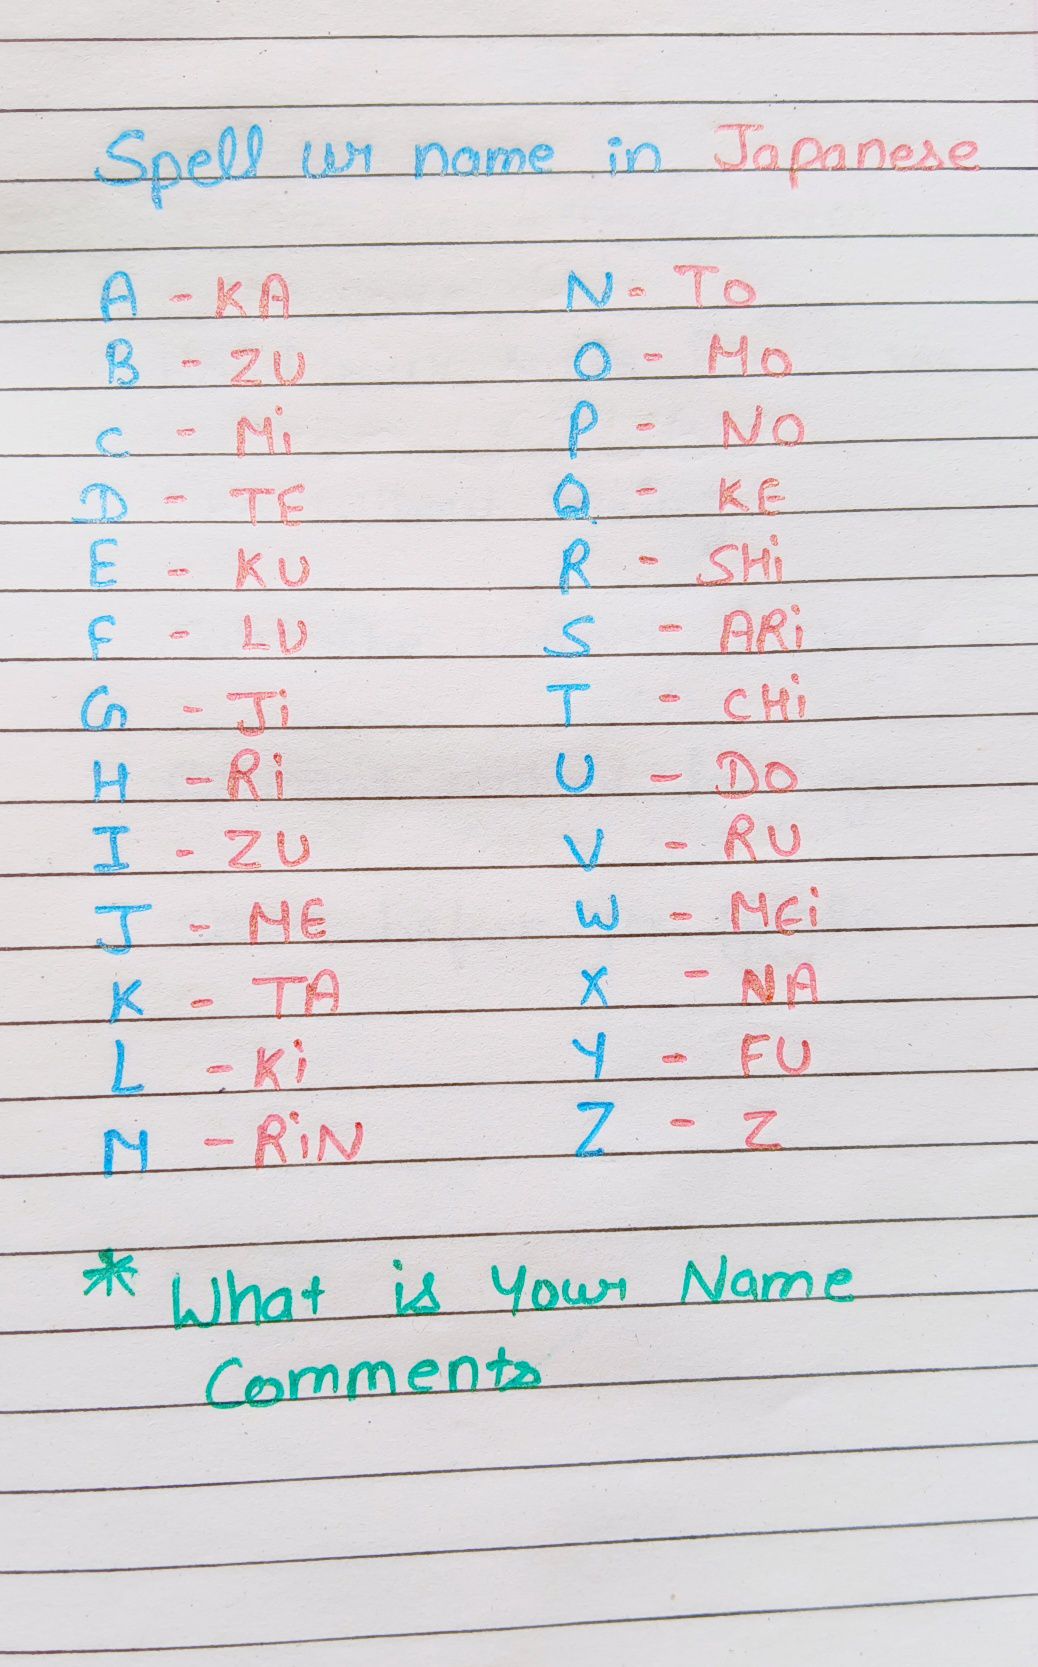 Spell ur name in Japanese
A - KA
B - ZU
C - Mi
D - TE
E - KU
F - LU
G - Ji
H - Ri
I - ZU
J - ME
K - TA
L - Ki
M - RiN
N - TO
O - MO
P - NO
Q - KE
R - SHi
S - ARi
T - CHi
U - DO
V - RU
W - MEi
X - NA
Y - FU
Z - Z
* What is Your Name
Comments